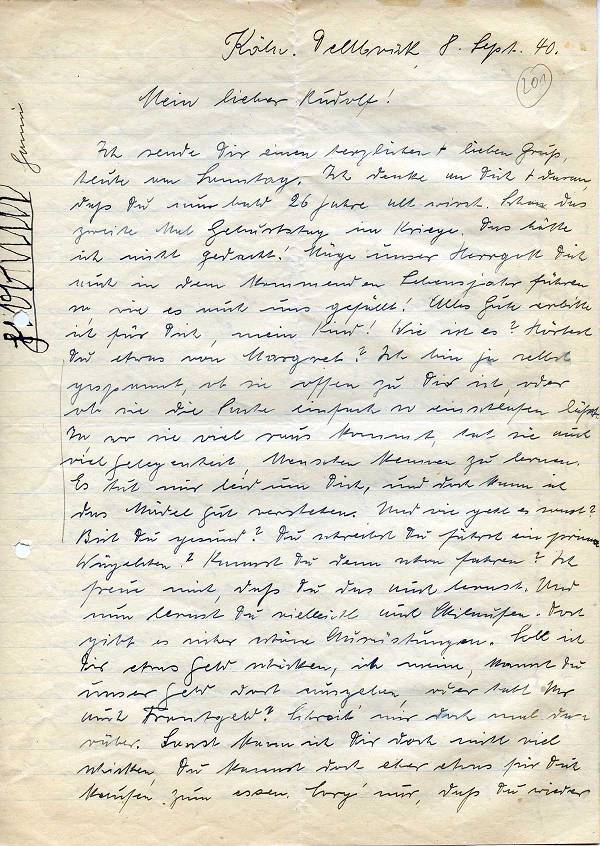 Köln. Dellbrück, 8. Sept. 40.
201
Mein lieber Rudolf!
Ich sende Dir einen herzlichen + lieben Gruß,
heute am Sonntag. Ich denke an Dich + daran,
daß Du nun bald 26 Jahre alt wirst. Schon das
zweite Mal Geburtstag im Kriege. Das hätte
ich nicht gedacht! Möge unser Herrgott Dich
auch in dem kommenden Lebensjahr führen
so, wie es auch uns gefällt! Alles Gute erbitte
ich für Dich, mein Kind! Wie ist es? Hörtest
Du etwas von Margret? Ich bin ja selbst
gespannt, ob sie offen zu Dir ist, oder
ob sie die Sache einfach so einschlafen läßt.
Da wo sie viel raus kommt, hat sie auch
viel Gelegenheit, Menschen kennen zu lernen.
Es tut mir leid um Dich, und doch kann ich
das Mädel gut verstehen. Und wie geht es sonst?
Bist Du gesund? Du schreibst Du fährst ein prima
Wägelchen? Kannst Du denn schon fahren? Ich
freue mich, daß Du das auch lernst. Und
nun lernst Du vielleicht auch Skilaufen. Dort
gibt es sicher schöne Ausrüstungen. Soll ich
Dir etwas Geld schicken, ich meine, kannst Du
unser Geld dort ausgeben oder habt Ihr
auch Frontgeld? Schreib' mir doch mal da-
rüber. Sonst kann ich Dir doch nicht viel
schicken, Du kannst doch aber etwas für Dich
kaufen zum essen. Sorg' nur, daß Du wieder